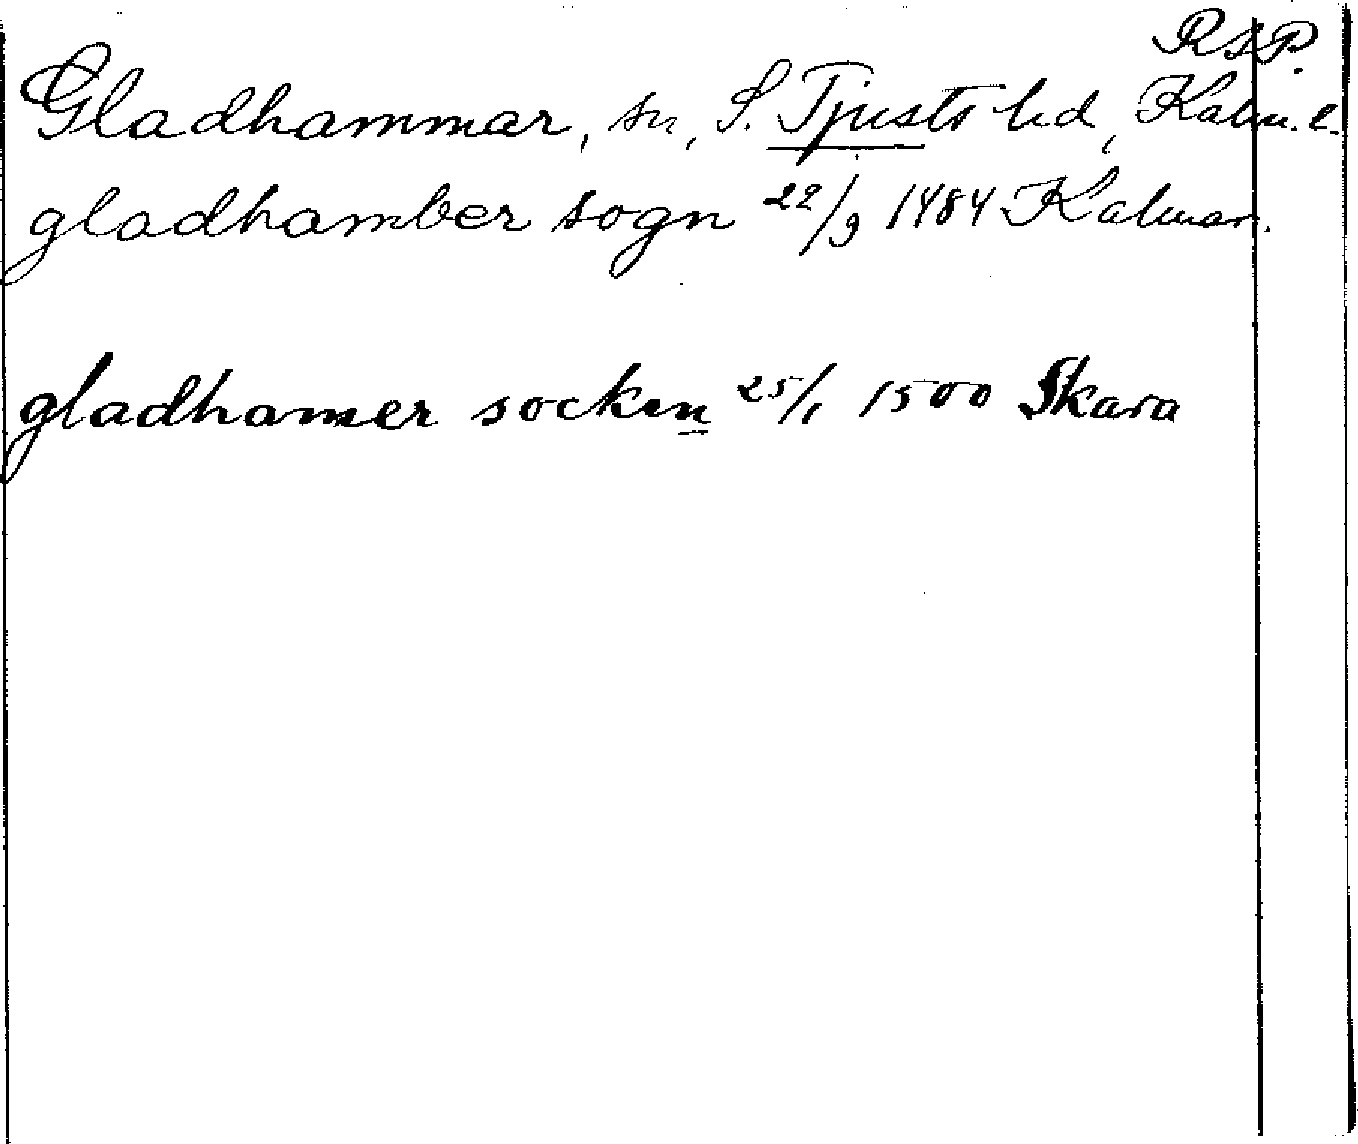 RSP.
Gladhammar, sn, S. Tjusts hd, Kalm. l.
gladhamber sogn 22/9 1484 Kalmar.
gladhamer socken 25/1 1500 Skara